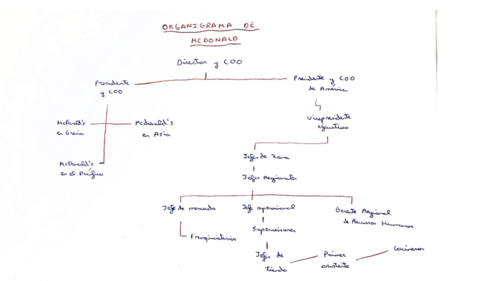 ORGANIGRAMA DE
MCDONALD
Director y COO
Presidente
y COO
Presidente y COO
de América
McDonald's
en Grecia
McDonald's
en Asia
Vicepresidente
ejecutivo
McDonald's
en el Pacífico
Jefes de Zona
Jefes Regionales
Jefe de mercado
Jefe operacional
Gerente Regional
de Recursos Humanos
Franquiciatarios
Supervisores
Jefes de
tienda
Primer
asistente
Cocineros